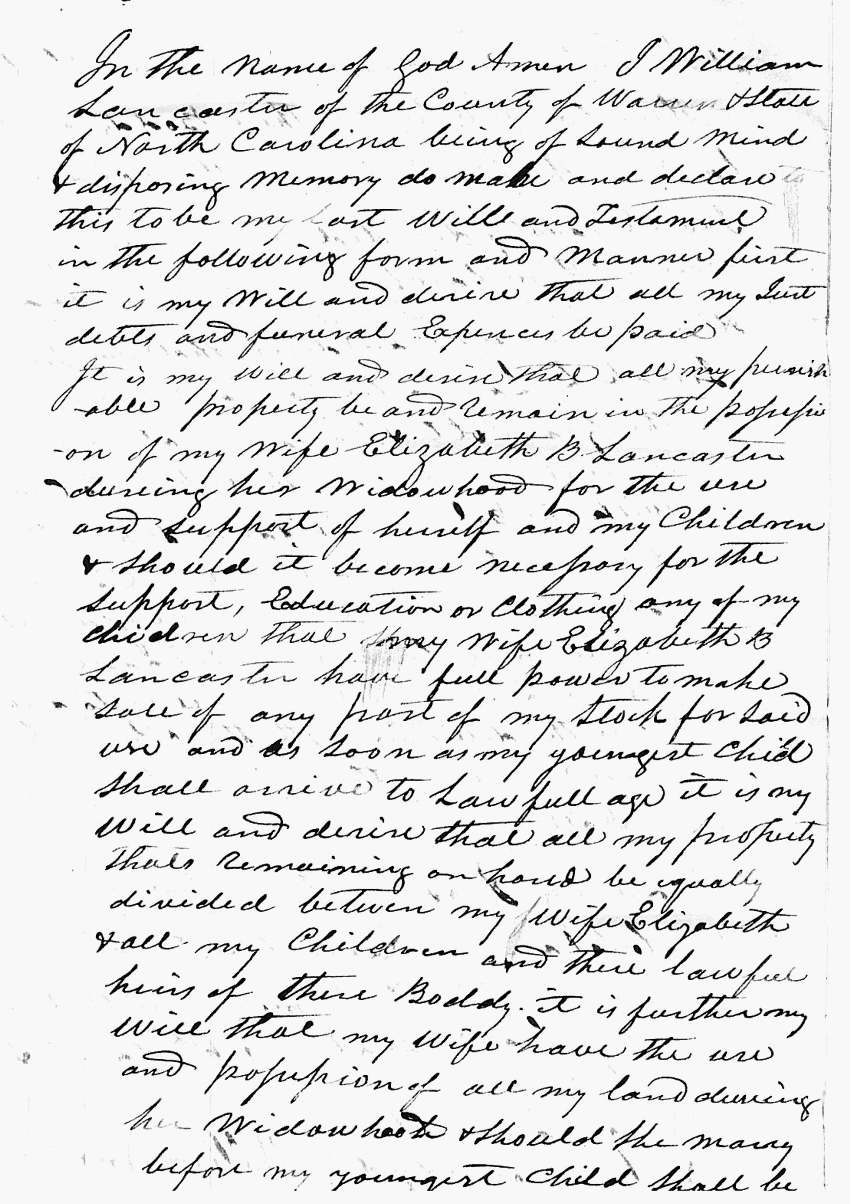 In the name of God Amen I William
Lancaster of the County of Warren & State
of North Carolina being of Sound Mind
& disposing Memory do make and declare
this to be my last Will and Testament
in the following form and Manner first
it is my Will and desire that all my Just
debts and funeral Expences be paid
It is my Will and desire that all my perish
-able property be and remain in the possessi
-on of my Wife Elizabeth B Lancaster
dureing her Widowhood for the use
and support of herself and my Children
& should it become necessary for the
support, Education or Clothing any of my
children that my Wife Elizabeth B
Lancaster have full power to make
sale of any part of my Stock for said
use and as soon as my youngest Child
shall arrive to Lawfull age it is my
Will and desire that all my property
thats remaining on hand be equally
divided between my Wife Elizabeth
& all my Children and there lawfull
heirs of there Boddy. it is further my
Will that my Wife have the use
and possession of all my land dureing
her Widowhood & should she marry
before my youngest Child shall be